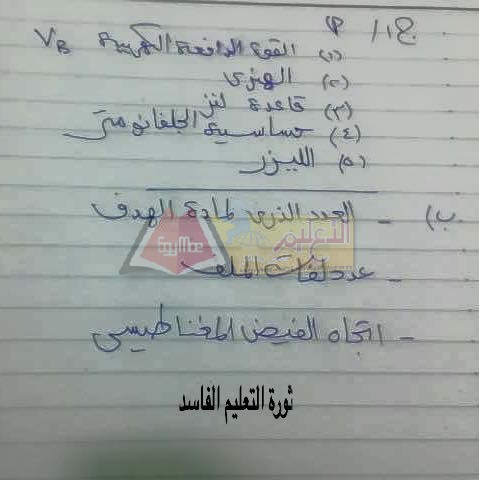 ج١/ P
(١) القوة الدافعة الكهربية VB
(٢) الهنرى
(٣) قاعدة لنز
(٤) حساسية الجلفانومتر
(٥) الليزر
ب) - العدد الذرى لمادة الهدف
التعليم
- عدد لفات الملف
- اتجاه الفيض المغناطيسى
ثورة التعليم الفاسد